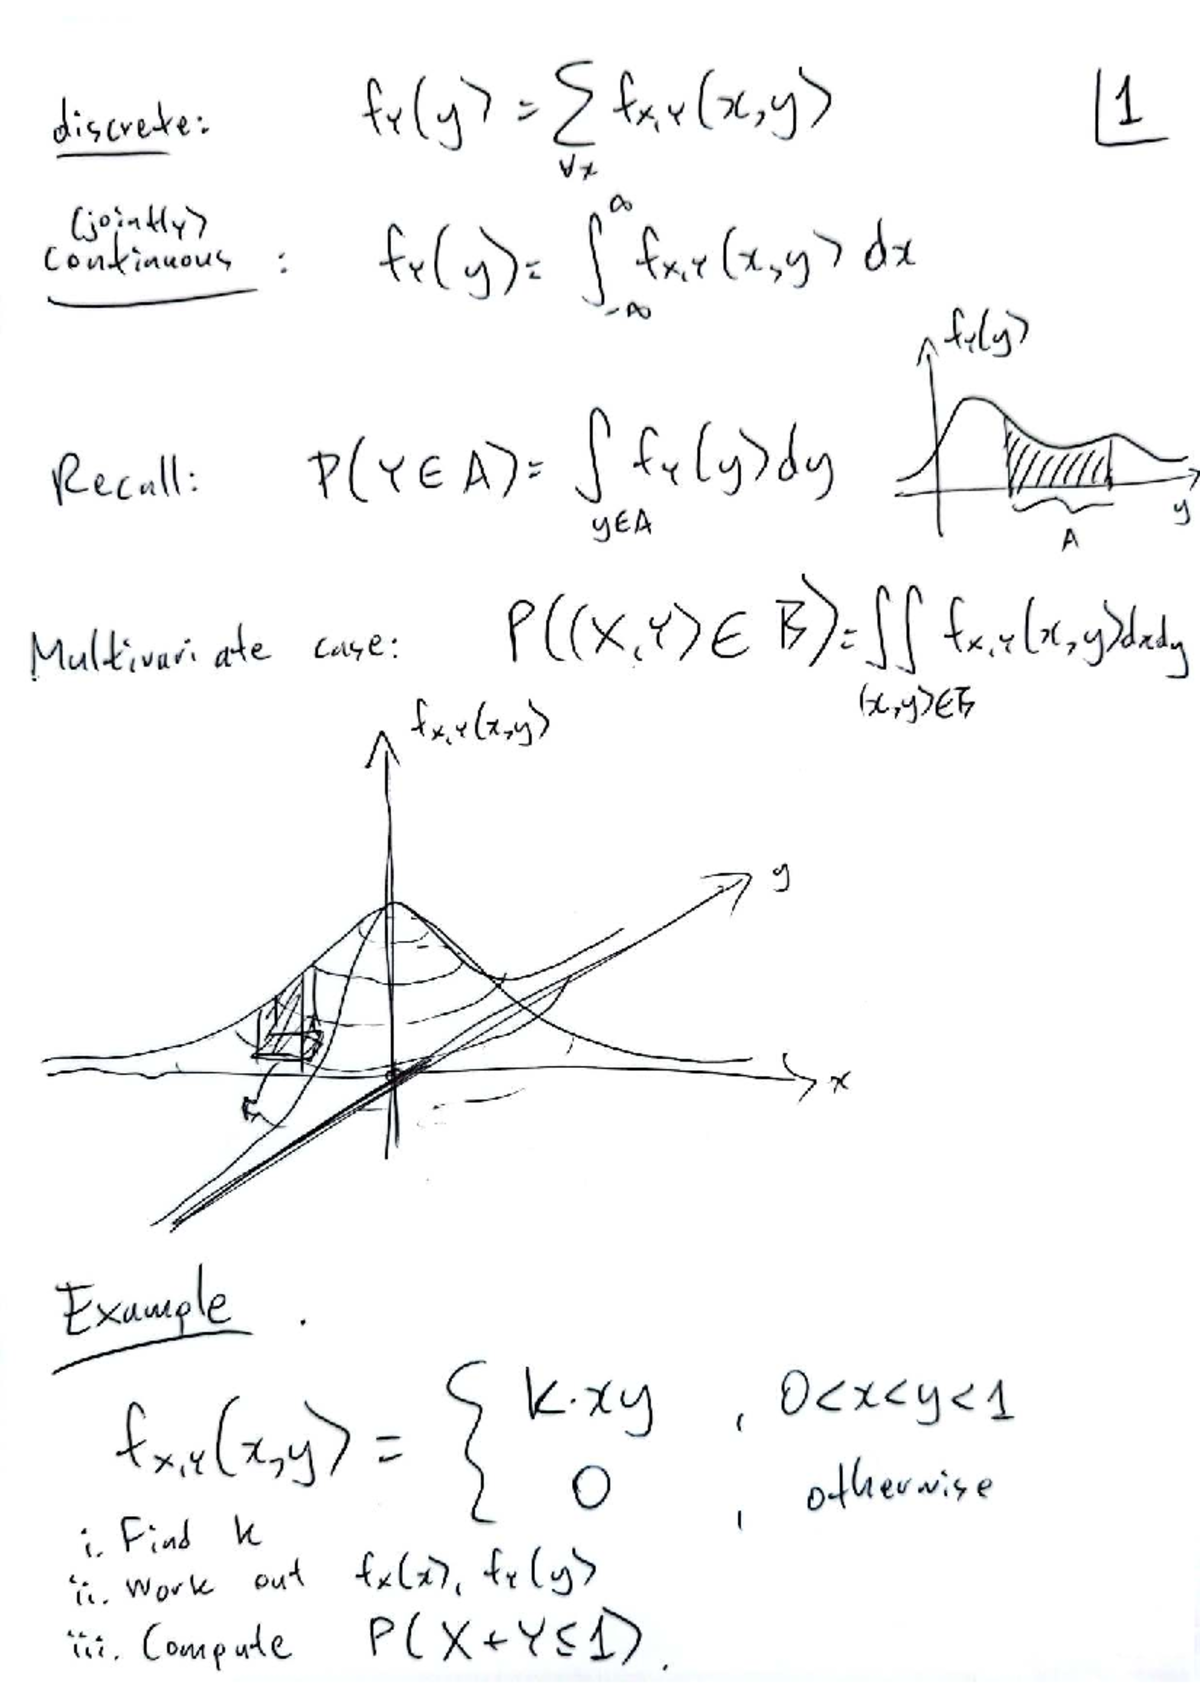 discrete: f_Y(y) = ∑_{∀x} f_{X,Y}(x,y)
1
(jointly)
continuous : f_Y(y) = ∫_{-∞}^{∞} f_{X,Y}(x,y) dx
f_Y(y)
Recall: P(Y∈A) = ∫_{y∈A} f_Y(y) dy
y
A
Multivariate case: P((X,Y)∈B) = ∬_{(x,y)∈B} f_{X,Y}(x,y) dxdy
f_{X,Y}(x,y)
y
x
Example.
f_{X,Y}(x,y) = { k·xy , 0<x<y<1
0 , otherwise
i. Find k
ii. Work out f_X(x), f_Y(y)
iii. Compute P(X+Y≤1).